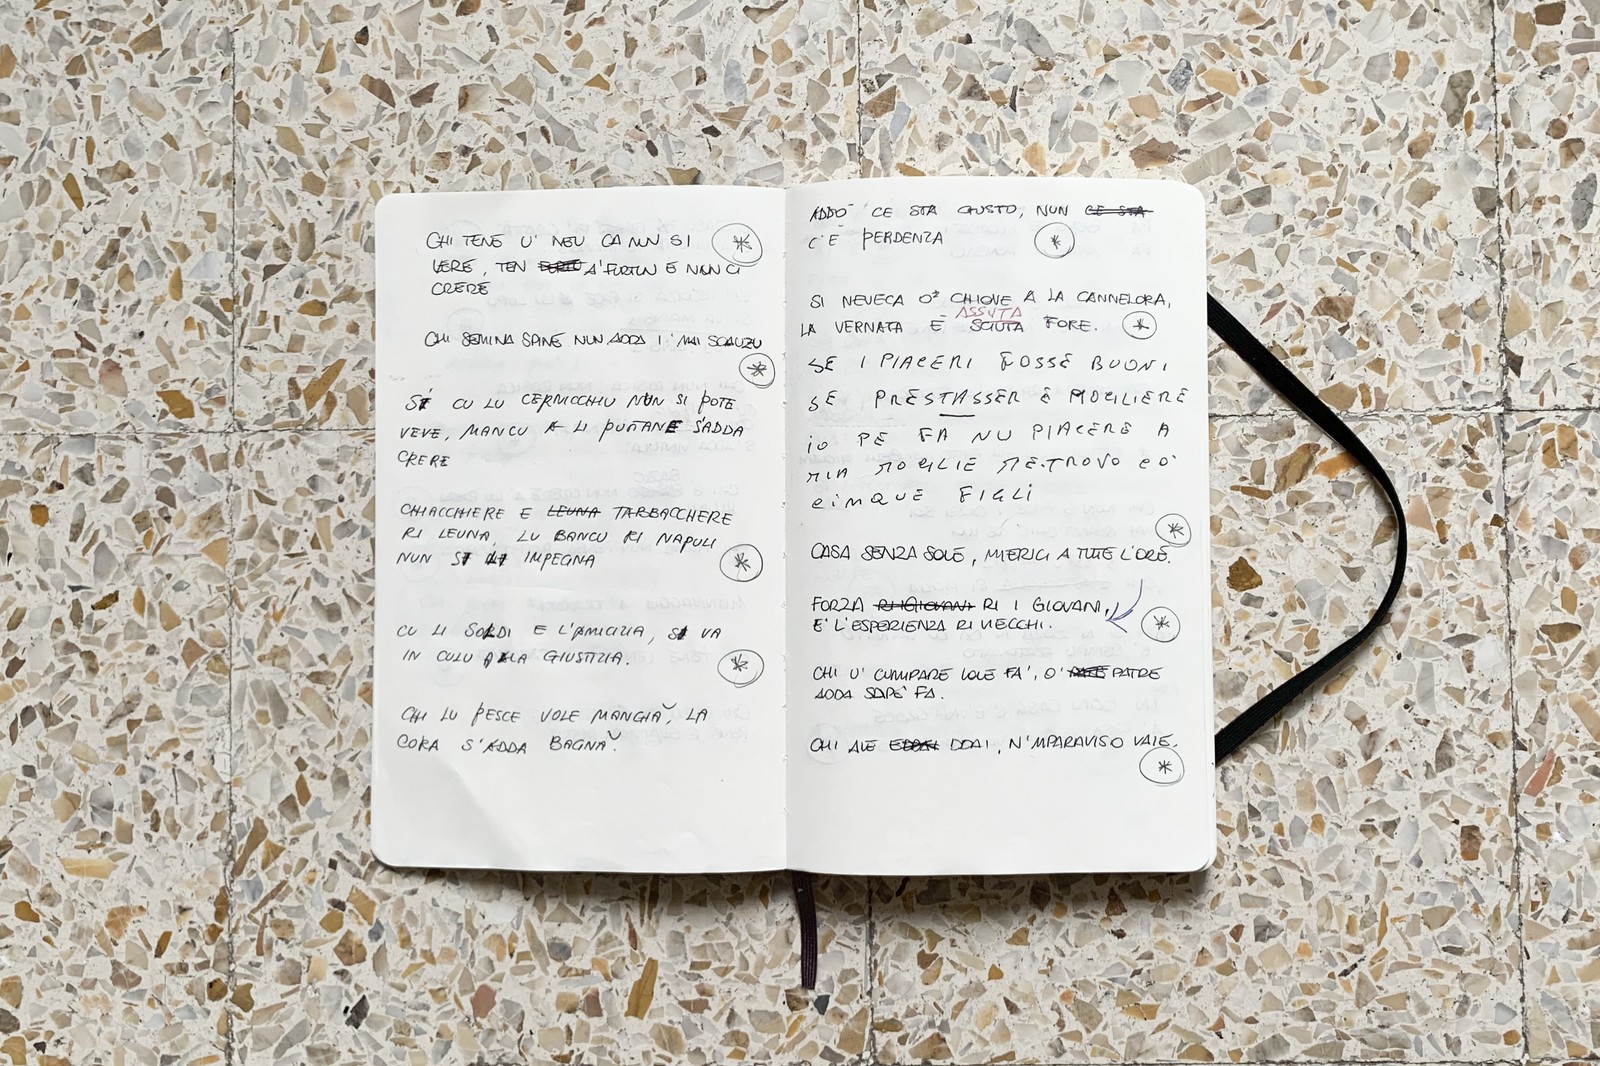 CHI TENE U' NEU CA NUN SI
VERE, TEN A' FURTUN E NUN CI
CRERE
CHI SEMINA SPINE NUN ADDA I' MAI SCAUZU
SI CU LU CERNICCHIU NUN SI POTE
VEVE, MANCU A LI PUTTANE S'ADDA
CRERE
CHIACCHIERE E LEUNA TABBACCHERE
RI LEUNA, LU BANCU RI NAPULI
NUN SI IMPEGNA
CU LI SOLDI E L'AMICIZIA, SI VA
IN CULU ALLA GIUSTIZIA.
CHI LU PESCE VOLE MANGIÀ, LA
CORA S'ADDA BAGNÀ.
ADDÒ CE STA GUSTO, NUN CE STA
C'È PERDENZA
SI NEVECA O CHIOVE A LA CANNELORA,
ASSUTA
LA VERNATA È SCIUTA FORE.
SE I PIACERI FOSSE BUONI
SE PRESTASSER E MOGLIERE
IO PE FA NU PIACERE A
MIA MOGLIE ME TROVO CO'
CINQUE FIGLI
CASA SENZA SOLE, MIERICI A TUTTE L'ORE.
FORZA RI GIOVANI RI I GIOVANI,
E' L'ESPERIENZA RI VIECCHI.
CHI U' CUMPARE VOLE FA', O' PATRE
ADDA SAPE' FA.
CHI AVE DDAI, N'MPARAVISO VAIE.